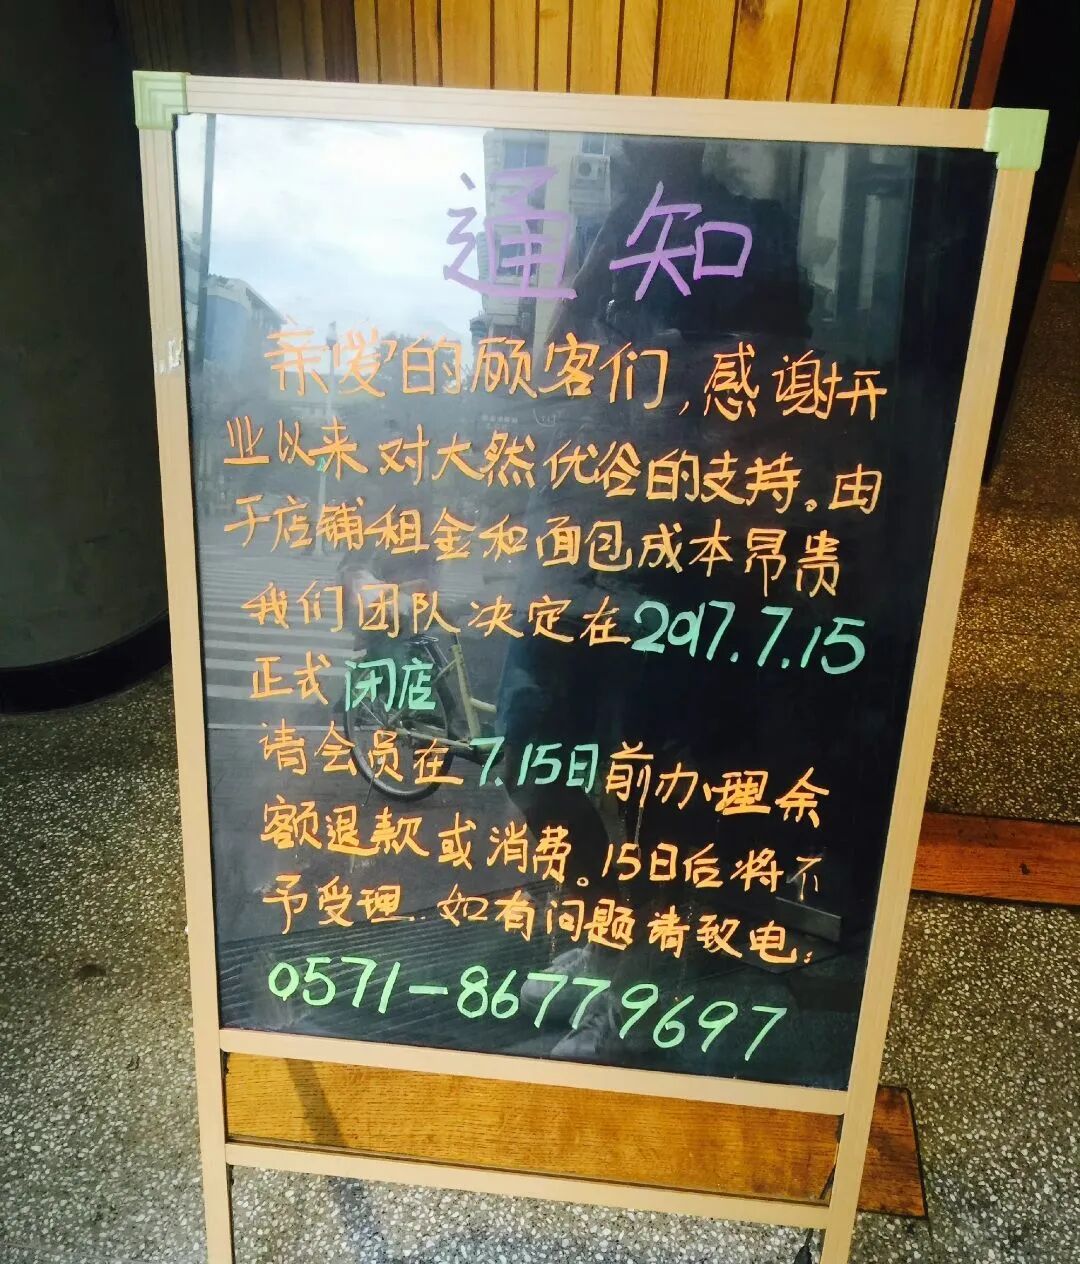 通知
亲爱的顾客们，感谢开
业以来对大然优谷的支持。由
于店铺租金和面包成本昂贵
我们团队决定在2017.7.15
正式闭店
请会员在7.15日前办理余
额退款或消费。15日后将不
予受理.如有问题请致电:
0571-86779697